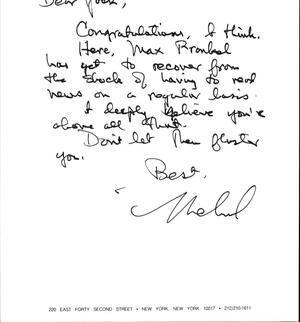 Dear
Congratulations, I think.
Here, Max Frankel
has yet to recover from
the shock of having to read
news on a regular basis.
I deeply believe you're
above all that.
Don't let them fluster
you.
Best,
220 EAST FORTY SECOND STREET • NEW YORK, NEW YORK 10017 • 212/210-1611